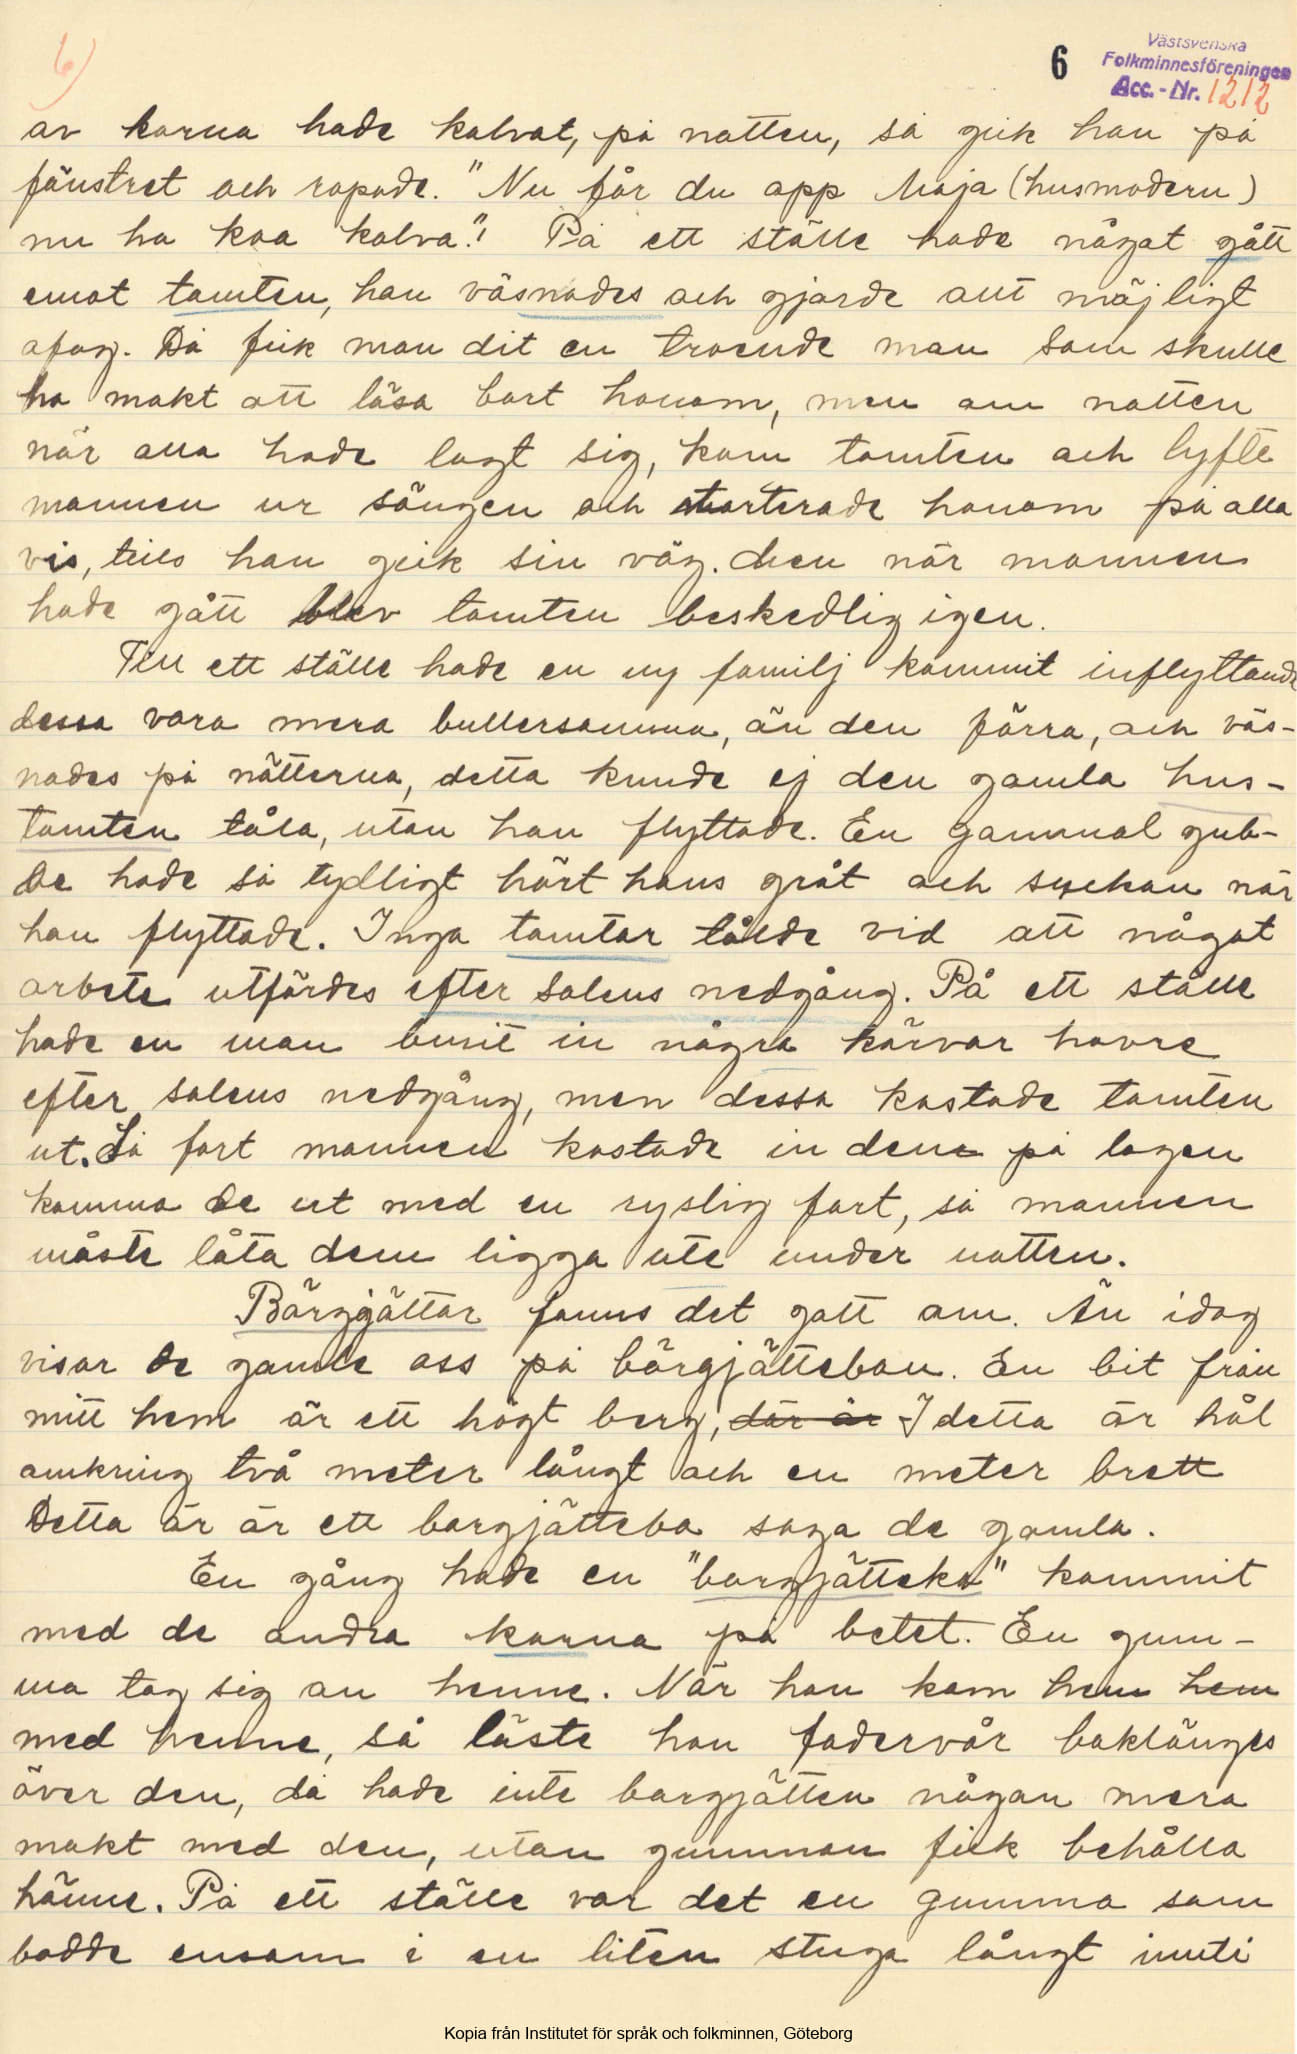 6)
6
Västsvenska
Folkminnesföreningen
Acc.-Nr. 1212
av korna hade kalvat, på natten, så gick han på
fönstret och ropade. "Nu får du opp Maja (husmodern)
nu ha koa kalva". På ett ställe hade något gått
emot tomten, han väsnades och gjorde allt möjligt
ofog. Då fick man dit en troende man som skulle
ha makt att läsa bort honom, men om natten
när alla hade lagt sig, kom tomten och lyfte
mannen ur sängen och morterade honom på alla
vis, tills han gick sin väg. Men när mannen
hade gått blev tomten beskedlig igen.
Till ett ställe hade en ny familj kommit inflyttande
dessa voro mera bullersamma, än den förra, och väs-
nades på nätterna, detta kunde ej den gamla hus-
tomten tåla, utan han flyttade. En gammal gub-
be hade så tydligt hört hans gråt och suckan när
han flyttade. Inga tomtar tålde vid att något
arbete utfördes efter solens nedgång. På ett ställe
hade en man burit in några kärvar havre
efter solens nedgång, men dessa kastade tomten
ut. Så fort mannen kastade in dem på logen
kommo de ut med en ryslig fart, så mannen
måste låta dem ligga ute under natten.
Bärgjättar fanns det gott om. Än idag
visar de gamle oss på bärgjättebon. En bit från
mitt hem är ett högt berg, där är I detta är hål
omkring två meter långt och en meter brett
Detta är är ett bargjättebo säga de gamla.
En gång hade en "bargjätteko" kommit
med de andra korna på betet. En gum-
ma tog sig an henne. När hon kom hem hem
med henne, så läste hon fadervår baklänges
över den, då hade inte bargjätten någon mera
makt med den, utan gumman fick behålla
hänne. På ett ställe var det en gumma som
bodde ensam i en liten stuga långt inuti
Kopia från Institutet för språk och folkminnen, Göteborg